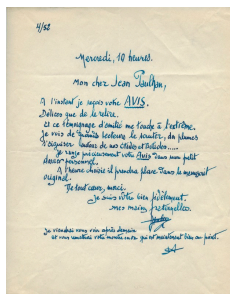 4/52
Mercredi, 10 heures.
Mon cher Jean Paulhan,
A l'instant je reçois votre AVIS.
Délices que de le relire.
Et ce témoignage d'amitié me touche à l'extrême.
Je vois de lecteurs le sauter, des plumes
s'aiguiser autour de nos études et articles.....
Je range précieusement votre Avis dans mon petit
dossier personnel.
A l'heure choisie il prendra place dans le manuscrit
original.
De tout cœur, merci.
Je suis votre bien fidèlement.
mes mains
Je viendrai vous voir après demain
et vous remettrai votre montre qui est maintenant bien au point.